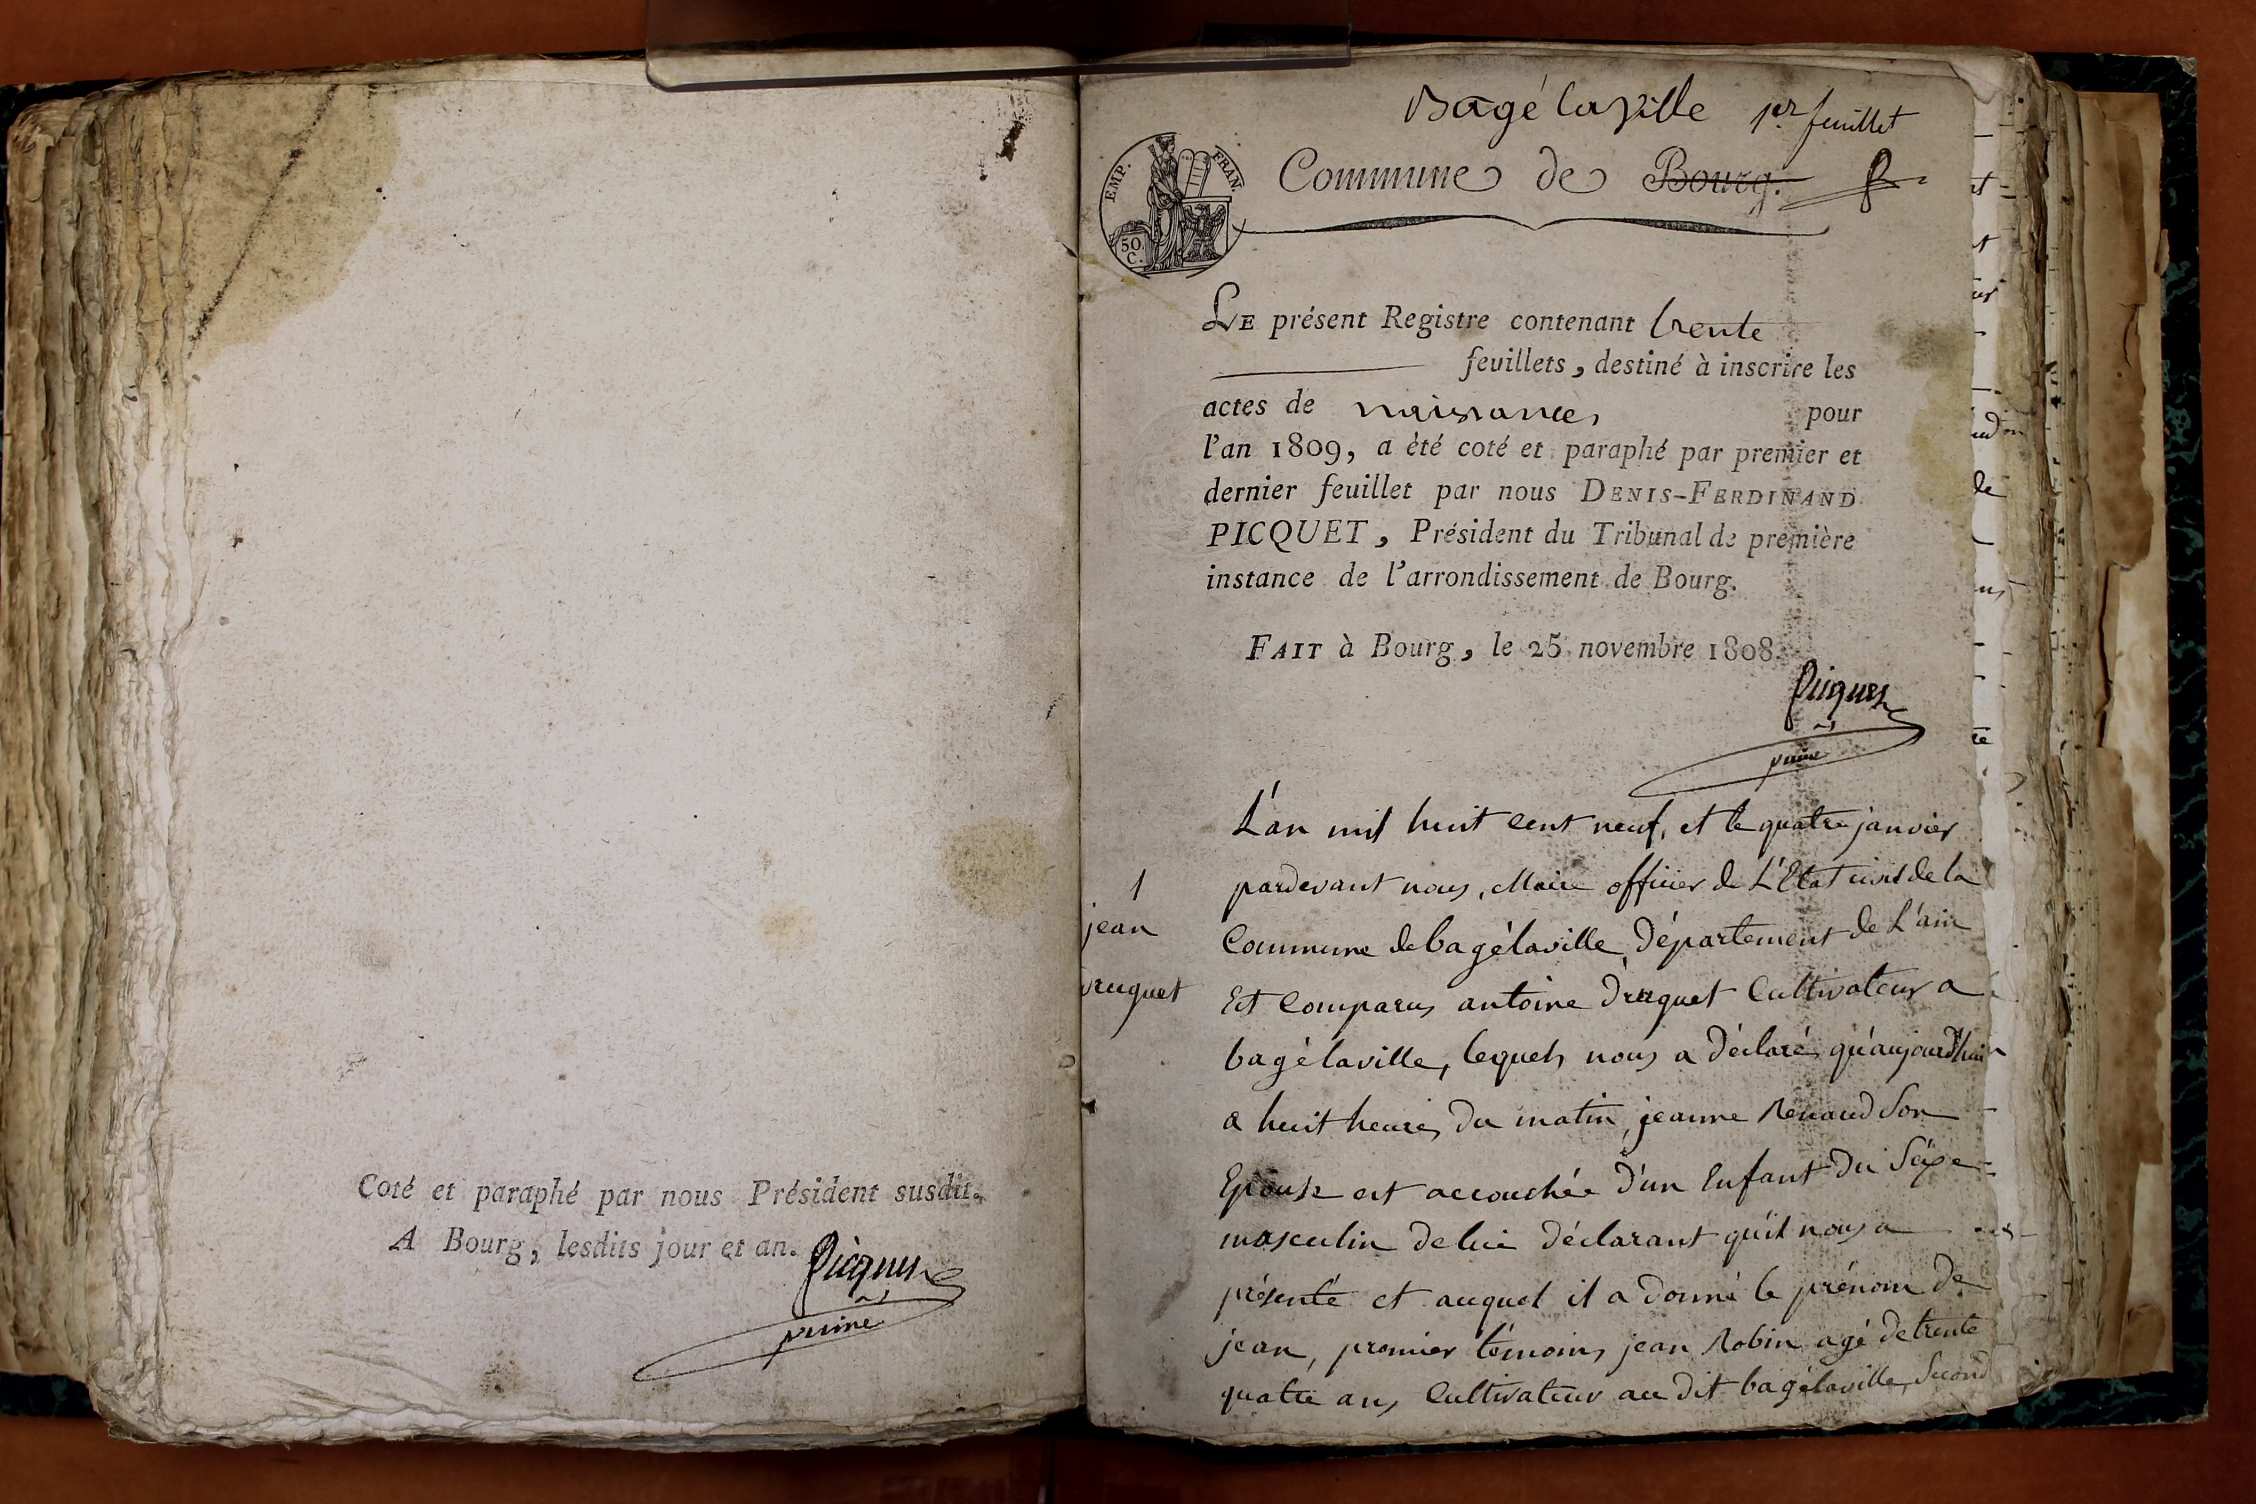 Coté et paraphé par nous Président susdit.
A Bourg, lesdits jour et an.
Picquet
Bagé la ville 1er feuillet
EMP. FRAN.
50 C.
Commune de Bourg.
LE présent Registre contenant trente
feuillets, destiné à inscrire les
actes de naissances pour
l'an 1809, a été coté et paraphé par premier et
dernier feuillet par nous DENIS-FERDINAND
PICQUET, Président du Tribunal de première
instance de l'arrondissement de Bourg.
FAIT à Bourg, le 25 novembre 1808.
Picquet
1
jean
druguet
L'an mil huit cent neuf, et le quatre janvier
pardevant nous, Maire officier de L'Etat civil de la
Commune de bagélaville Département de L'ain
Est Comparus antoine druguet Cultivateur a
bagélaville, lequels nous a déclaré qu'aujourd'hui
a huit heures du matin, jeanne Renaud Son
Epouse est accouchée d'un Enfant du Séxe
masculin de lui déclarant qu'il nous a
présenté et auquel il a donné le prénom de
jean, premier témoins jean Robin agé de trente
quatre ans Cultivateur au dit bagélaville, Second